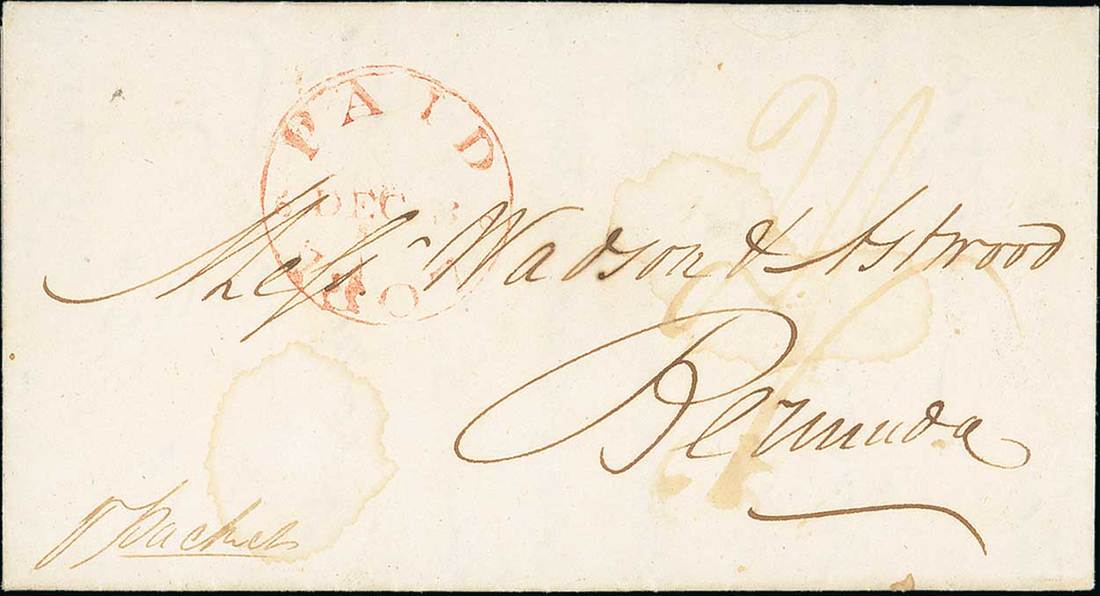 PAID
DEC
Messrs Wadson & Astwood
Bermuda
p packet